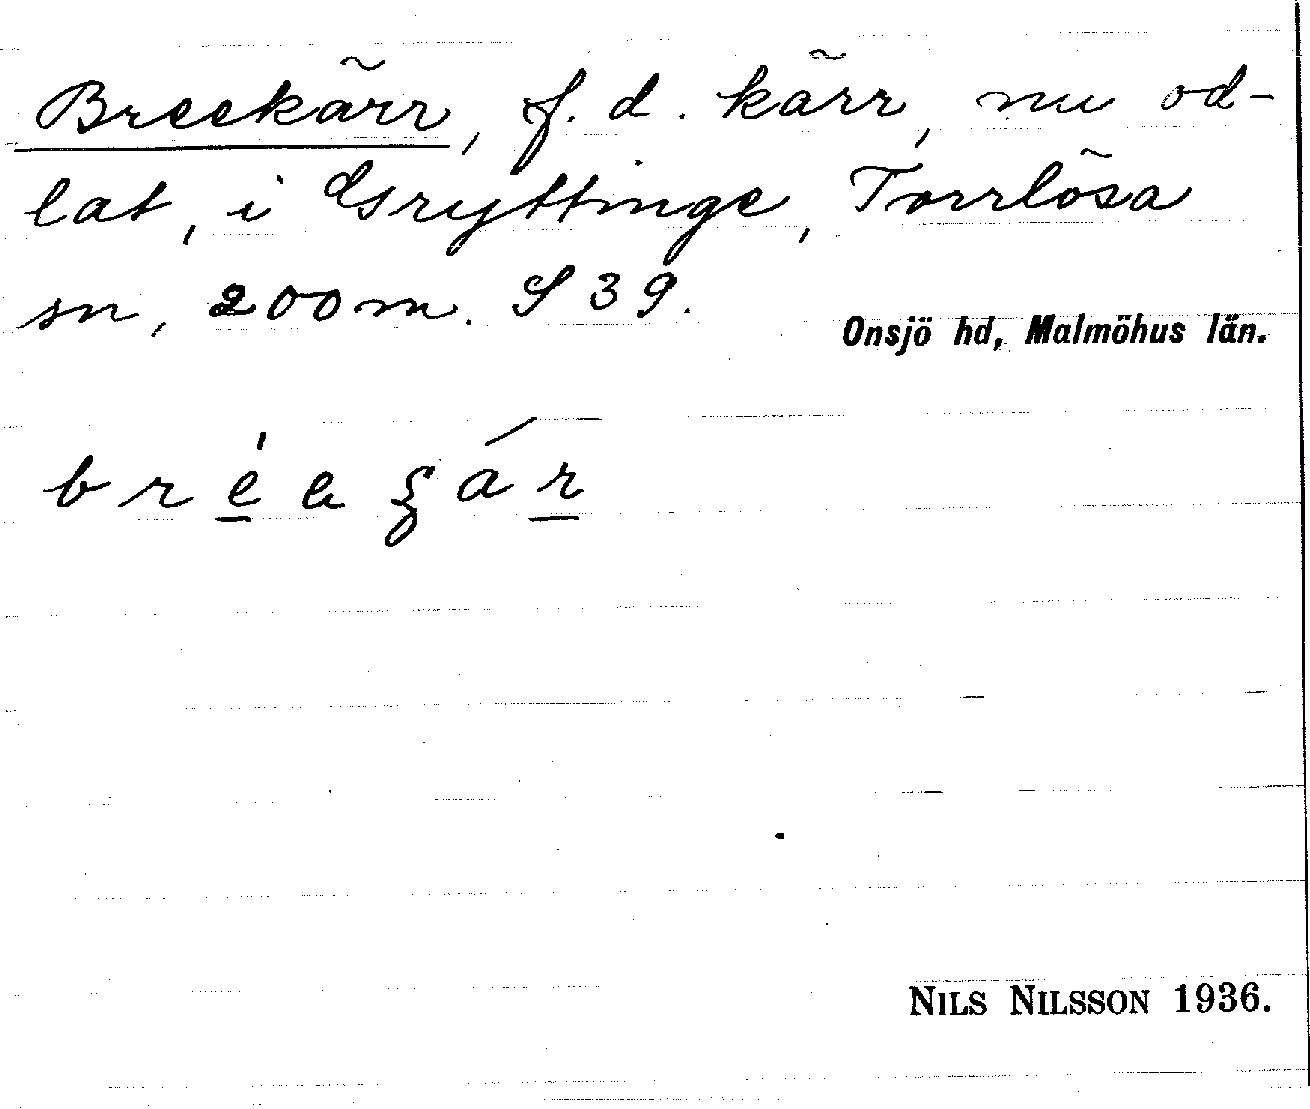 Breekärr, f. d. kärr, nu od-
lat, i Gryttinge, Torrlösa
sn, 200 m. S 39.
Onsjö hd, Malmöhus län.
NILS NILSSON 1936.